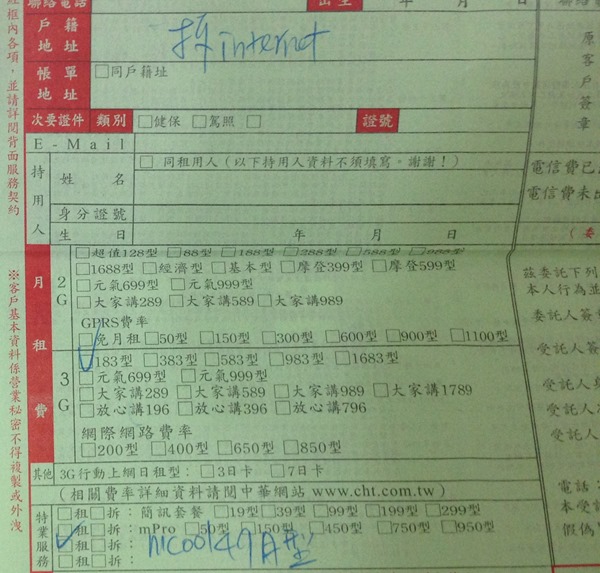 聯絡電話 出生 年 月
戶籍地址 拆internet
帳單地址 □同戶籍址
次要證件 類別 □健保 □駕照 □ 證號
E-Mail
持用人 □ 同租用人(以下持用人資料不須填寫。謝謝!)
姓名
身分證號
生日 年 月 日
月租費
2G □超值128型 □88型 □188型 □288型 □588型 □988型
□1688型 □經濟型 □基本型 □摩登399型 □摩登599型
□元氣699型 □元氣999型
□大家講289 □大家講589 □大家講989
GPRS費率
□免月租 □50型 □150型 □300型 □600型 □900型 □1100型
3G □183型 □383型 □583型 □983型 □1683型
□元氣699型 □元氣999型
□大家講289 □大家講589 □大家講989 □大家講1789
□放心講196 □放心講396 □放心講796
網際網路費率
□200型 □400型 □650型 □850型
其他 3G行動上網日租型: □3日卡 □7日卡
(相關費率詳細資料請閱中華網站 www.cht.com.tw)
特業服務 □租□拆:簡訊套餐 □19型 □39型 □99型 □199型 □299型
□租□拆:mPro □50型 □150型 □450型 □750型 □950型
□租□拆:
□租□拆:
框內各項,並請詳閱背面服務契約
※客戶基本資料係營業秘密不得複製或外洩
原客戶簽章
電信費已
電信費未
茲委託下列
本人行為並
委託人簽
受託人簽
受託人
受託人
受託人
電話
本受
假偽